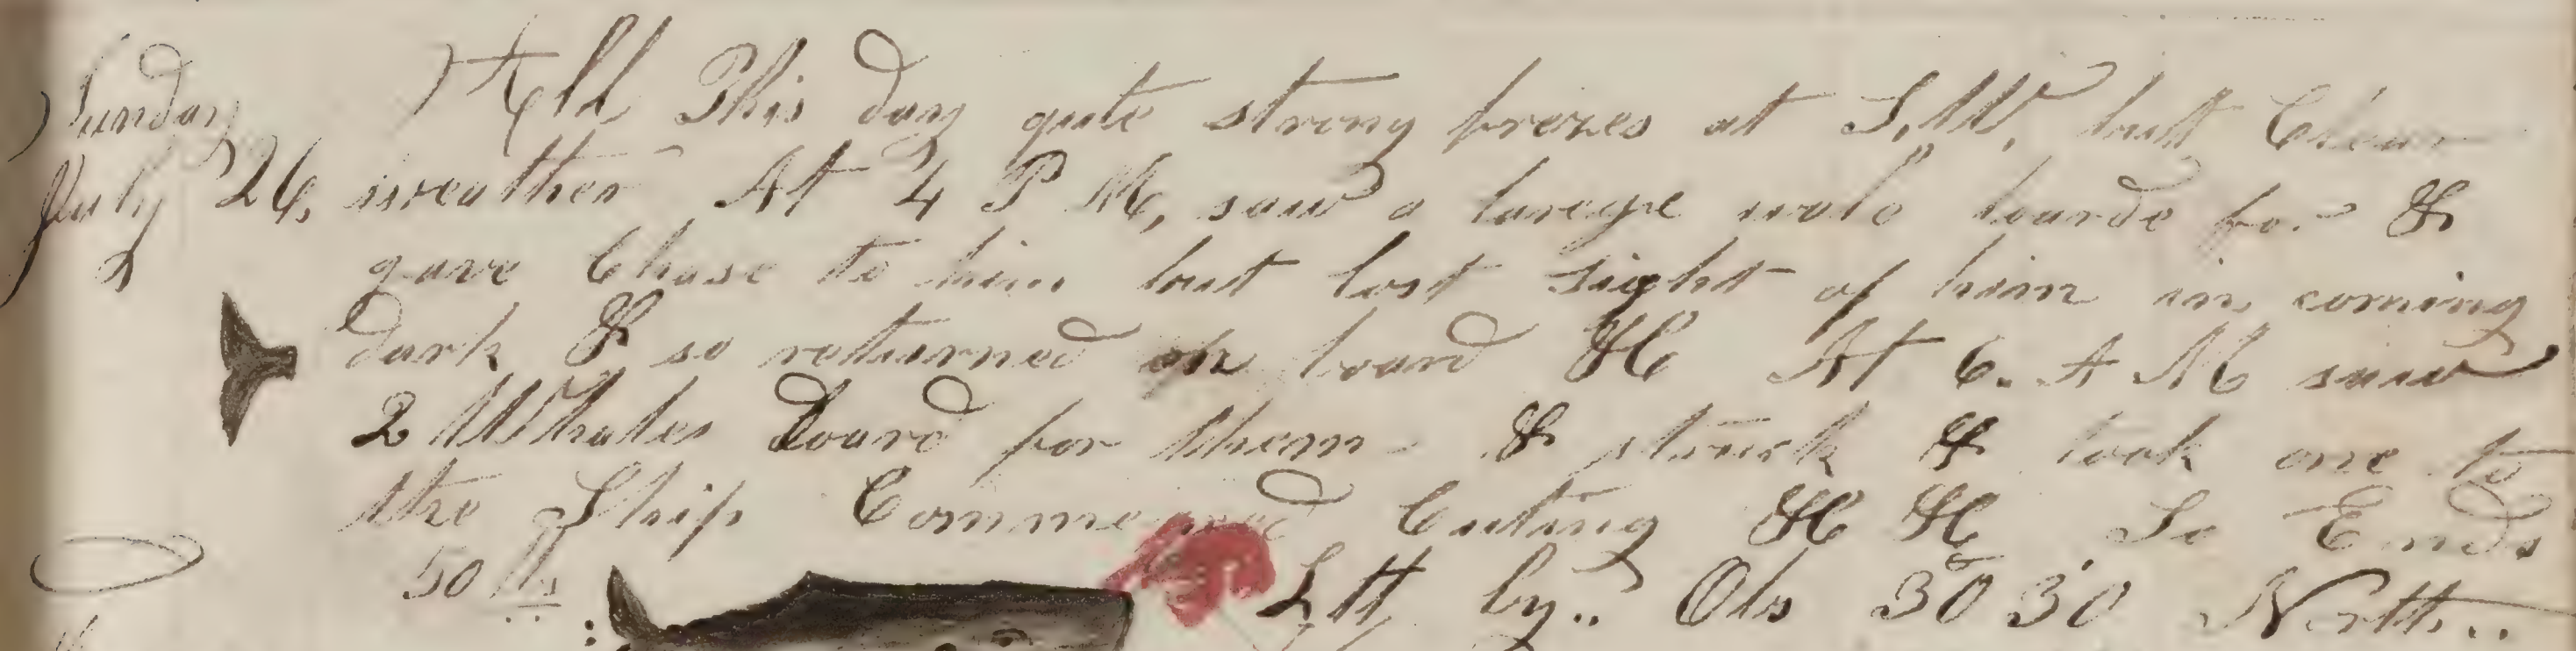 Sunday All This day quite strong brezes at S.W. butt Clear
July 26, weather At 4 P M, saw a larege wale lowrde for &
gave Chase to him but lost sight of him in coming
dark & so returned on board &C At 6. A M saw
2 Whales Lourd for them - & struck & took one to
the Ship Commenced Cuting &C &C So Ends
50 bls Latt by.. Obs 30° 30' North..